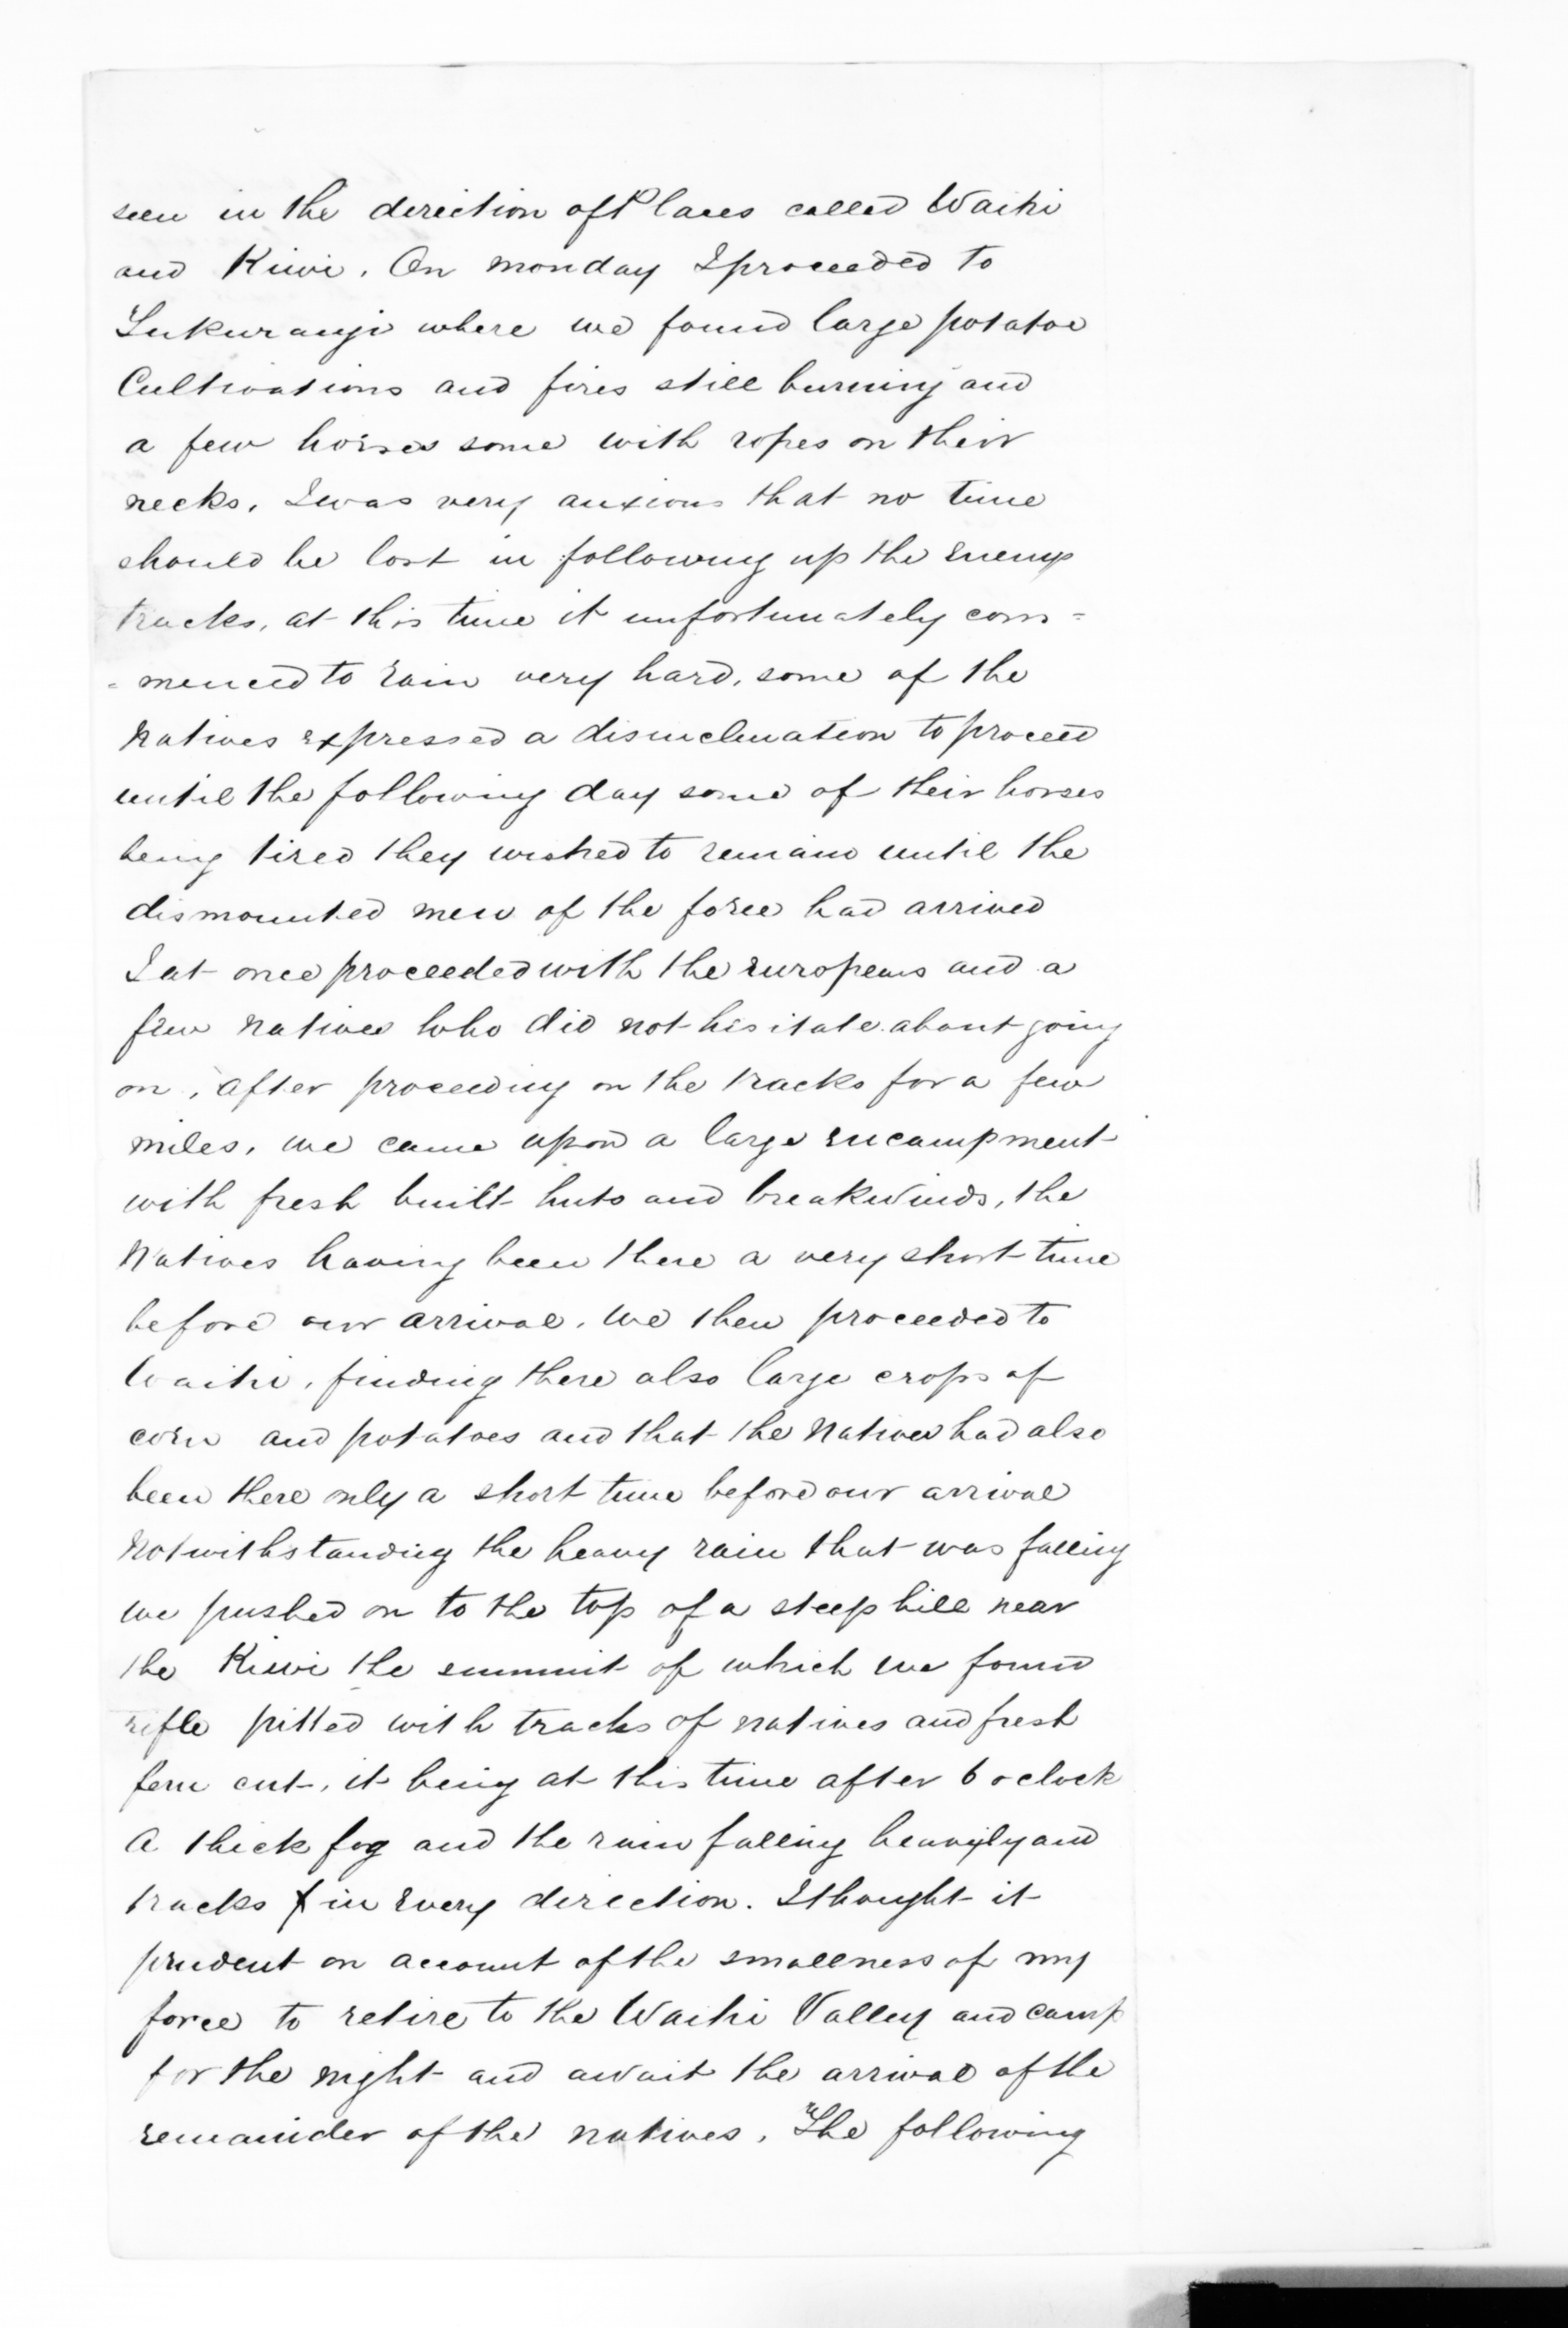 seen in the direction of Places called Waihi
and Kiwi. On monday I proceeded to
Tukurangi where we found large potatoe
Cultivations and fires still burning and
a few horses some with ropes on their
necks. I was very anxious that no time
should be lost in following up the Enemys
tracks, at this time it unfortunately com=
=menced to rain very hard, some of the
Natives expressed a disinclination to proceed
until the following day some of their horses
being tired they wished to remain until the
dismounted men of the force had arrived
I at once proceeded with the Europeans and a
few natives who did not hesitate about going
on, after proceeding on the tracks for a few
miles, we came upon a large encampment
with fresh built huts and breakwinds, the
Natives having been there a very short time
before our arrival. We then proceeded to
Waihi, finding there also large crops of
corn and potatoes and that the Natives had also
been there only a short time before our arrival
Notwithstanding the heavy rain that was falling
we pushed on to the top of a steep hill near
the Kiwi the summit of which we found
rifle pitted with tracks of natives and fresh
fern cut, it being at this time after 6 oclock
A thick fog and the rain falling heavyly and
tracks in every direction. I thought it
prudent on account of the smallness of my
force to retire to the Waihi Valley and camp
for the night and await the arrival of the
remainder of the natives. The following